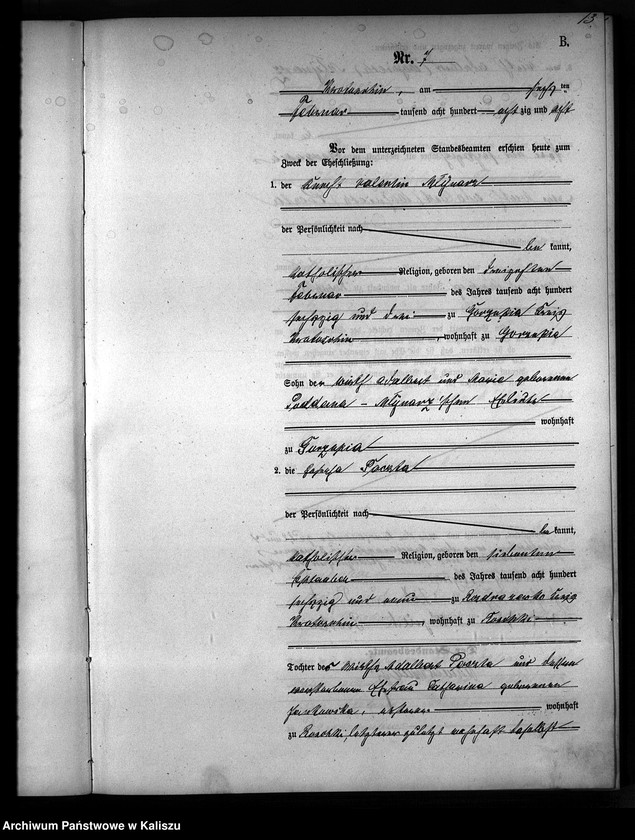 13
B.
Nr. 7
Krotoschin, am sechsten
Februar tausend acht hundert achtzig und acht
Vor dem unterzeichneten Standesbeamten erschien heute zum
Zweck der Eheschließung:
1. der Knecht Valentin Mlynarz
der Persönlichkeit nach
be kannt,
katholischer Religion, geboren den dreizehnten
Februar des Jahres tausend acht hundert
sechzig und drei zu Gorzupia Kreis
Krotoschin, wohnhaft zu Gorzupia
Sohn der Wirth Adalbert und Maria geborenen
Mlynarz'schen Eheleute
wohnhaft
zu Gorzupia
2. die Josepha Poczta
der Persönlichkeit nach
be kannt,
katholischer Religion, geboren den siebenten
des Jahres tausend acht hundert
sechzig und neun zu Kreis
Krotoschin, wohnhaft zu
Tochter des Wirths Adalbert Poczta und dessen
verstorbenen Ehefrau Catharina geborenen
ersterer wohnhaft
zu letzterer zuletzt wohnhaft daselbst
Archiwum Państwowe w Kaliszu